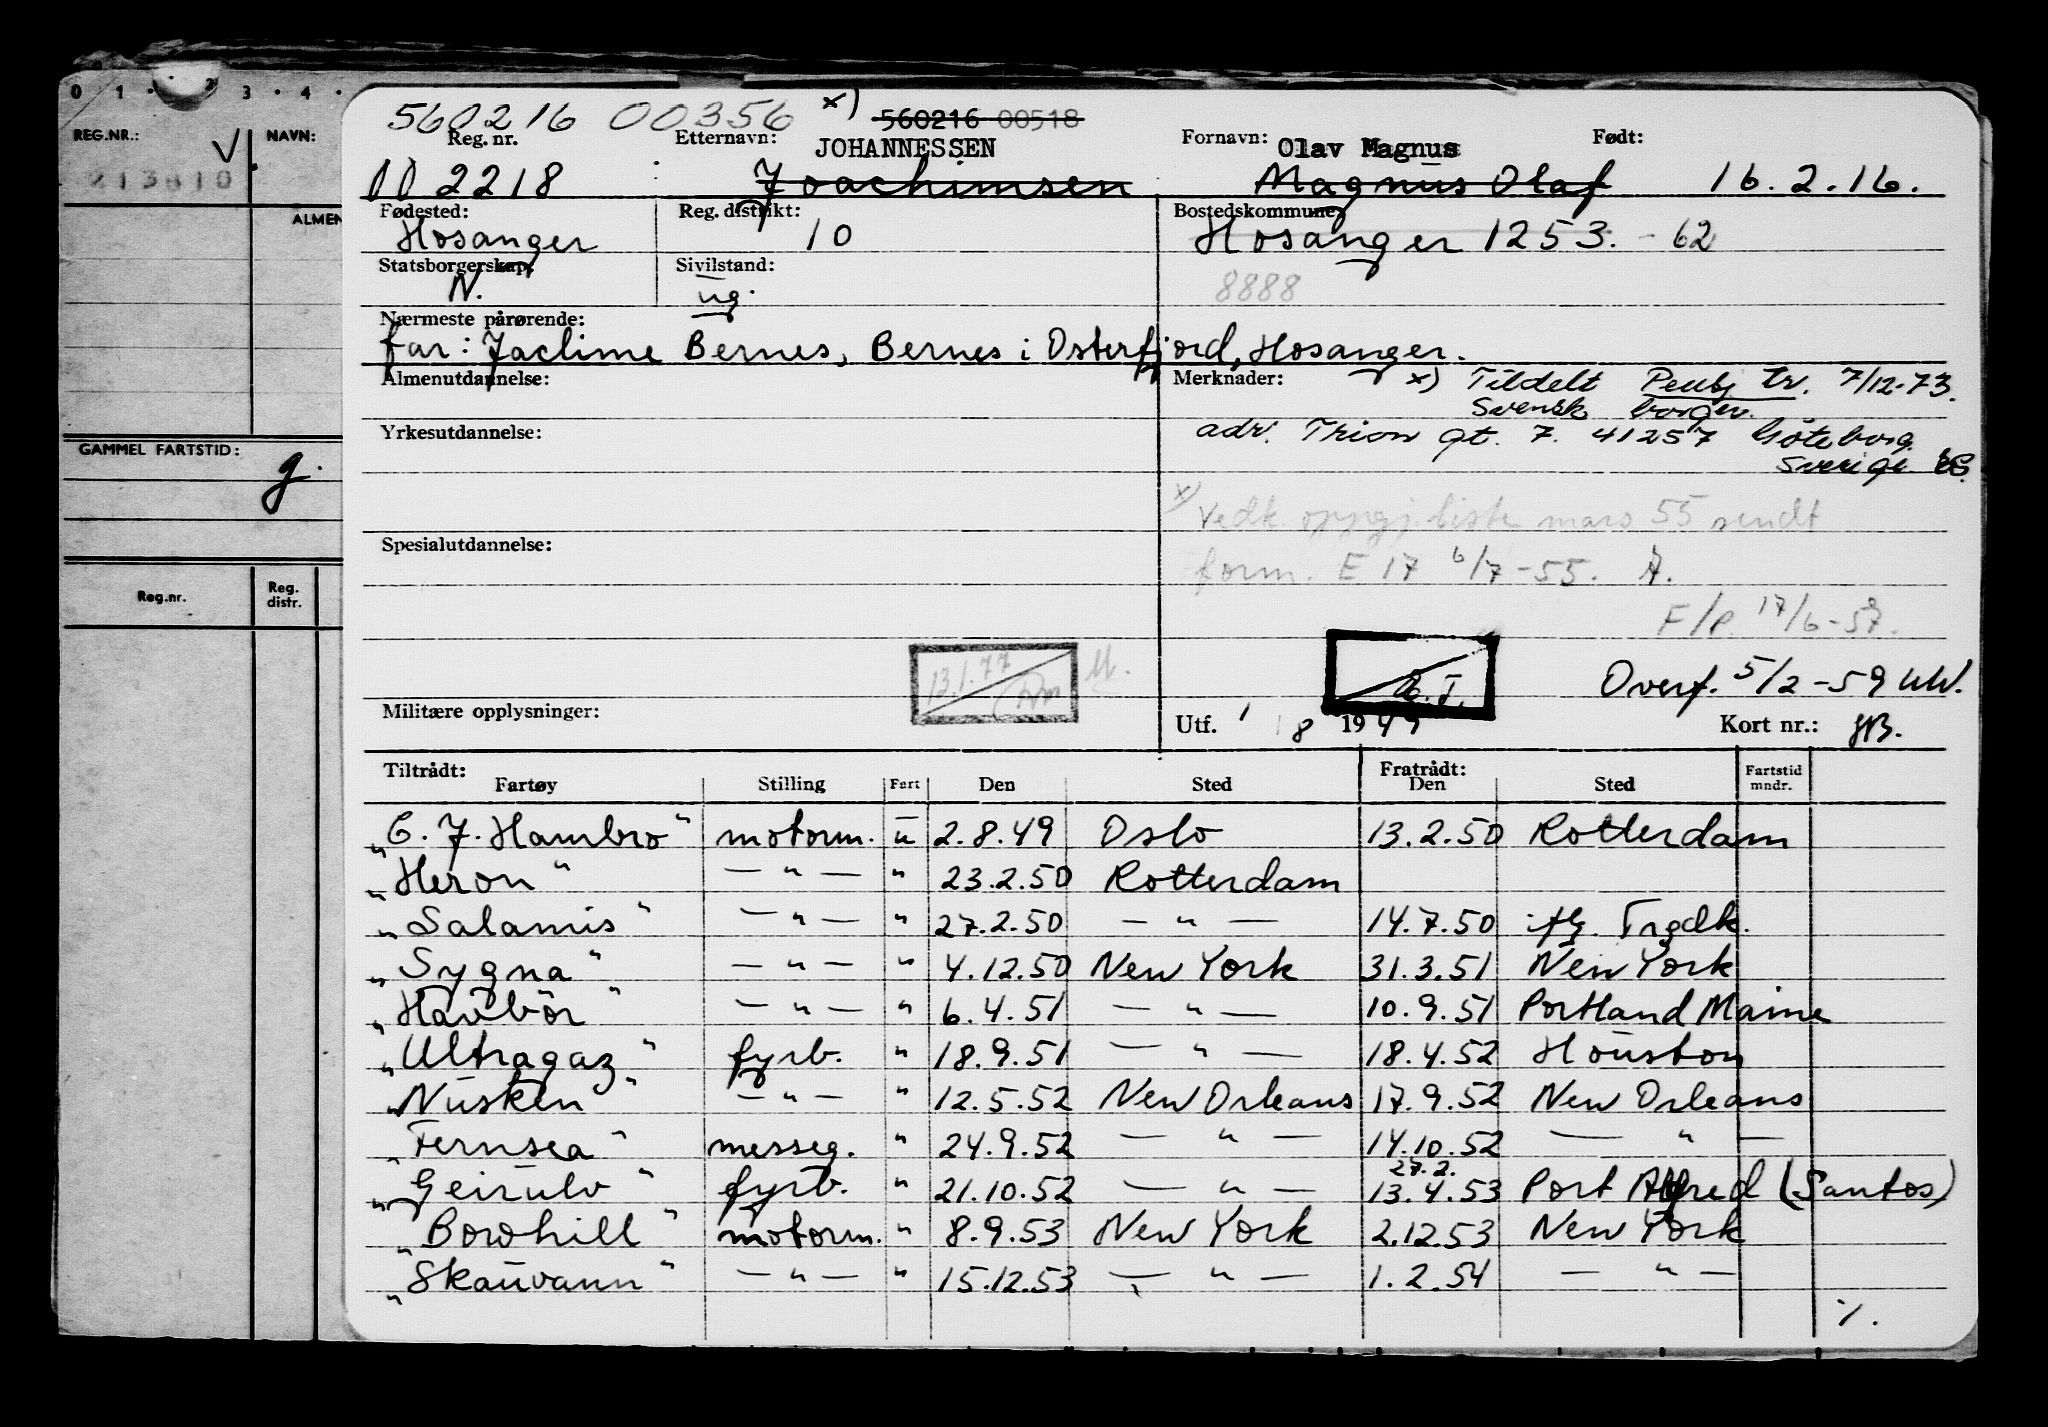 0 1 · 2 3 · 4 ·
REG.NR.: V NAVN:
213810
ALMEN
GAMMEL FARTSTID: g.
Reg.nr. Reg. distr.
560216 00356 x) 560216 00518
Reg. nr. Etternavn: JOHANNESSEN Fornavn: Olav Magnus Født:
002218 Joachimsen Magnus Olaf 16.2.16.
Fødested: Reg. distrikt: Bostedskommune:
Hosanger 10 Hosanger 1253. - 62
Statsborgerskap: Sivilstand:
N. ug. 8888
Nærmeste pårørende:
far: Jaclime Bernes, Bernes i Osterfjord, Hosanger.
Almenutdannelse: Merknader: x) Tildelt Pensj tr. 7/12-73.
Svensk borger.
Yrkesutdannelse: adr. Trion gt. 7. 41257 Göteborg
Sverige
x) Vedk. oppgj. liste mars 55 sendt
Spesialutdannelse:
form. E 17 6/7-55. A.
F/P. 17/6-57.
13.1.77
Overf. 5/2-59
Militære opplysninger: Utf. 1 8 1949 Kort nr.:
Tiltrådt: Fratrådt:
Fartøy Stilling Fart Den Sted Den Sted Fartstid mndr.
"C. J. Hambro" motorm. u 2.8.49 Oslo 13.2.50 Rotterdam
"Heron" — " — " 23.2.50 Rotterdam
"Salamis" — " — " 27.2.50 — " — 14.7.50 iflg. Trgdk.
"Sygna" — " — " 4.12.50 New York 31.3.51 New York
"Havbör" — " — " 6.4.51 — " — 10.9.51 Portland Maine
"Ultragaz" fyrb. " 18.9.51 — " — 18.4.52 Houston
"Nusken" — " — " 12.5.52 New Orleans 17.9.52 New Orleans
"Fernsea" messeg. " 24.9.52 — " — 14.10.52 — " —
27.2.
"Geirulv" fyrb. " 21.10.52 — " — 13.4.53 Port Alfred (Santos)
"Bowhill" motorm. " 8.9.53 New York 2.12.53 New York
"Skauvann" — " — " 15.12.53 — " — 1.2.54 — " —
·/.